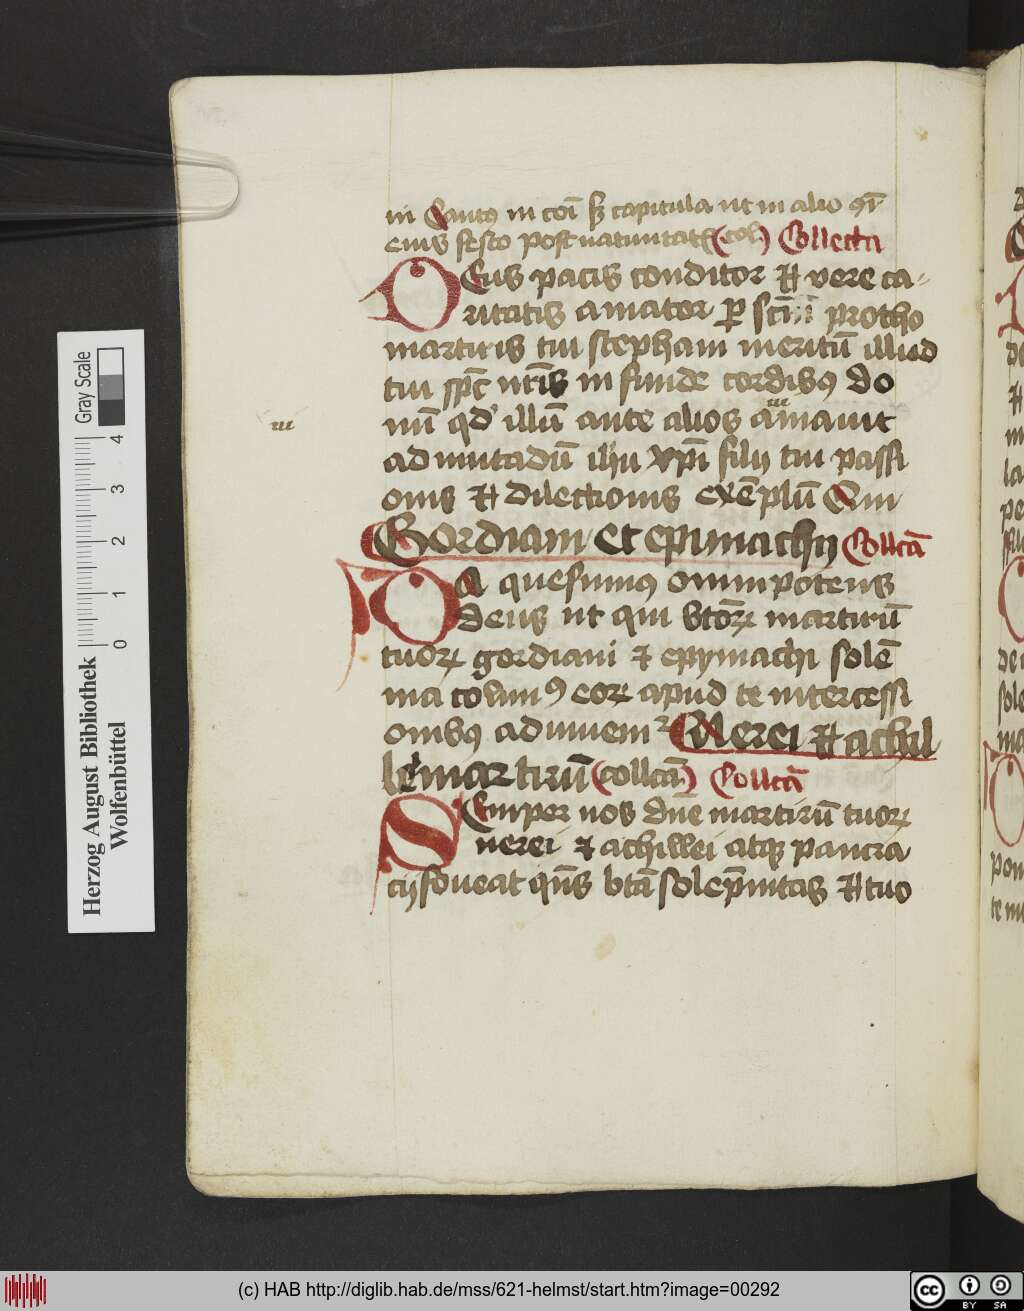 in Cantꝯ in coī sꝫ capitula ut in alio
eius festo post natiuitatē (col) Collecta
Deus pacis conditor et vere ca-
ritatis amator p scī prothо
martiris tui stephani meritū illud
tui spūc nrīs in funde cordibꝯ do
nū qd illū ante alios amauit
m
ad imitadū ihu xpī filij tui passi
onis et dilectionis exēplū Qui
Gordiani et epimachij Collcā
Da quesumꝯ omnipotens
deus ut qui btoꝝ martirū
tuoꝝ gordiani et epymachi solē
nia colimꝯ eoꝝ apud te intercessi
onibꝯ adiuuem Nerei et achil
lei martirū (collcā) Collcā
Semper nos dn̄e martirū tuoꝝ
nerei et achillei atqꝫ pancra
cij foueat qn̄s btā solep̄nitas et tuo
Herzog August Bibliothek
Wolfenbüttel
Gray Scale
0 1 2 3 4
(c) HAB http://diglib.hab.de/mss/621-helmst/start.htm?image=00292
cc BY SA